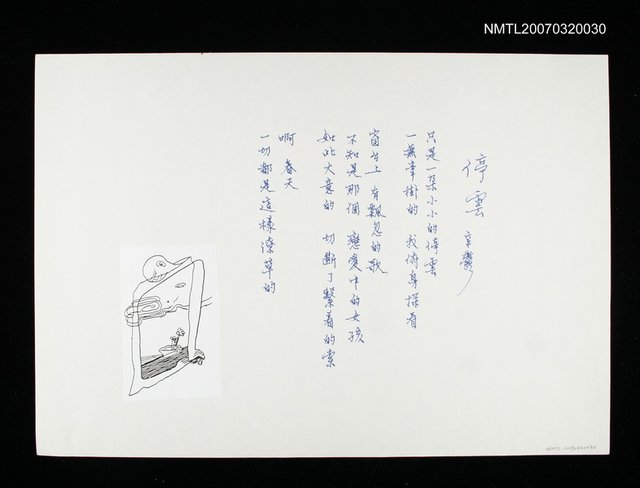 NMTL20070320030
停雲
辛鬱
只是一朵小小的停雲
一無牽掛的 我俯身探看
窗台上 有飄忽的歌
不知是那個 戀愛中的女孩
如此大意的 切斷了繫着的索
啊 春天
一切都是這樣潦草的
NMTL20070320030